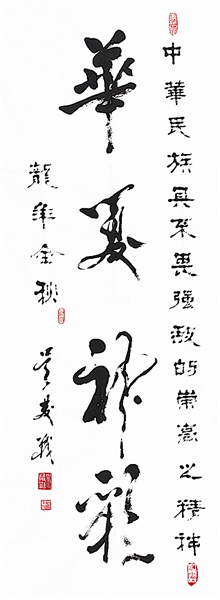 中華民族具不畏強敵的崇高之精神
華夏神彩
龍年金秋